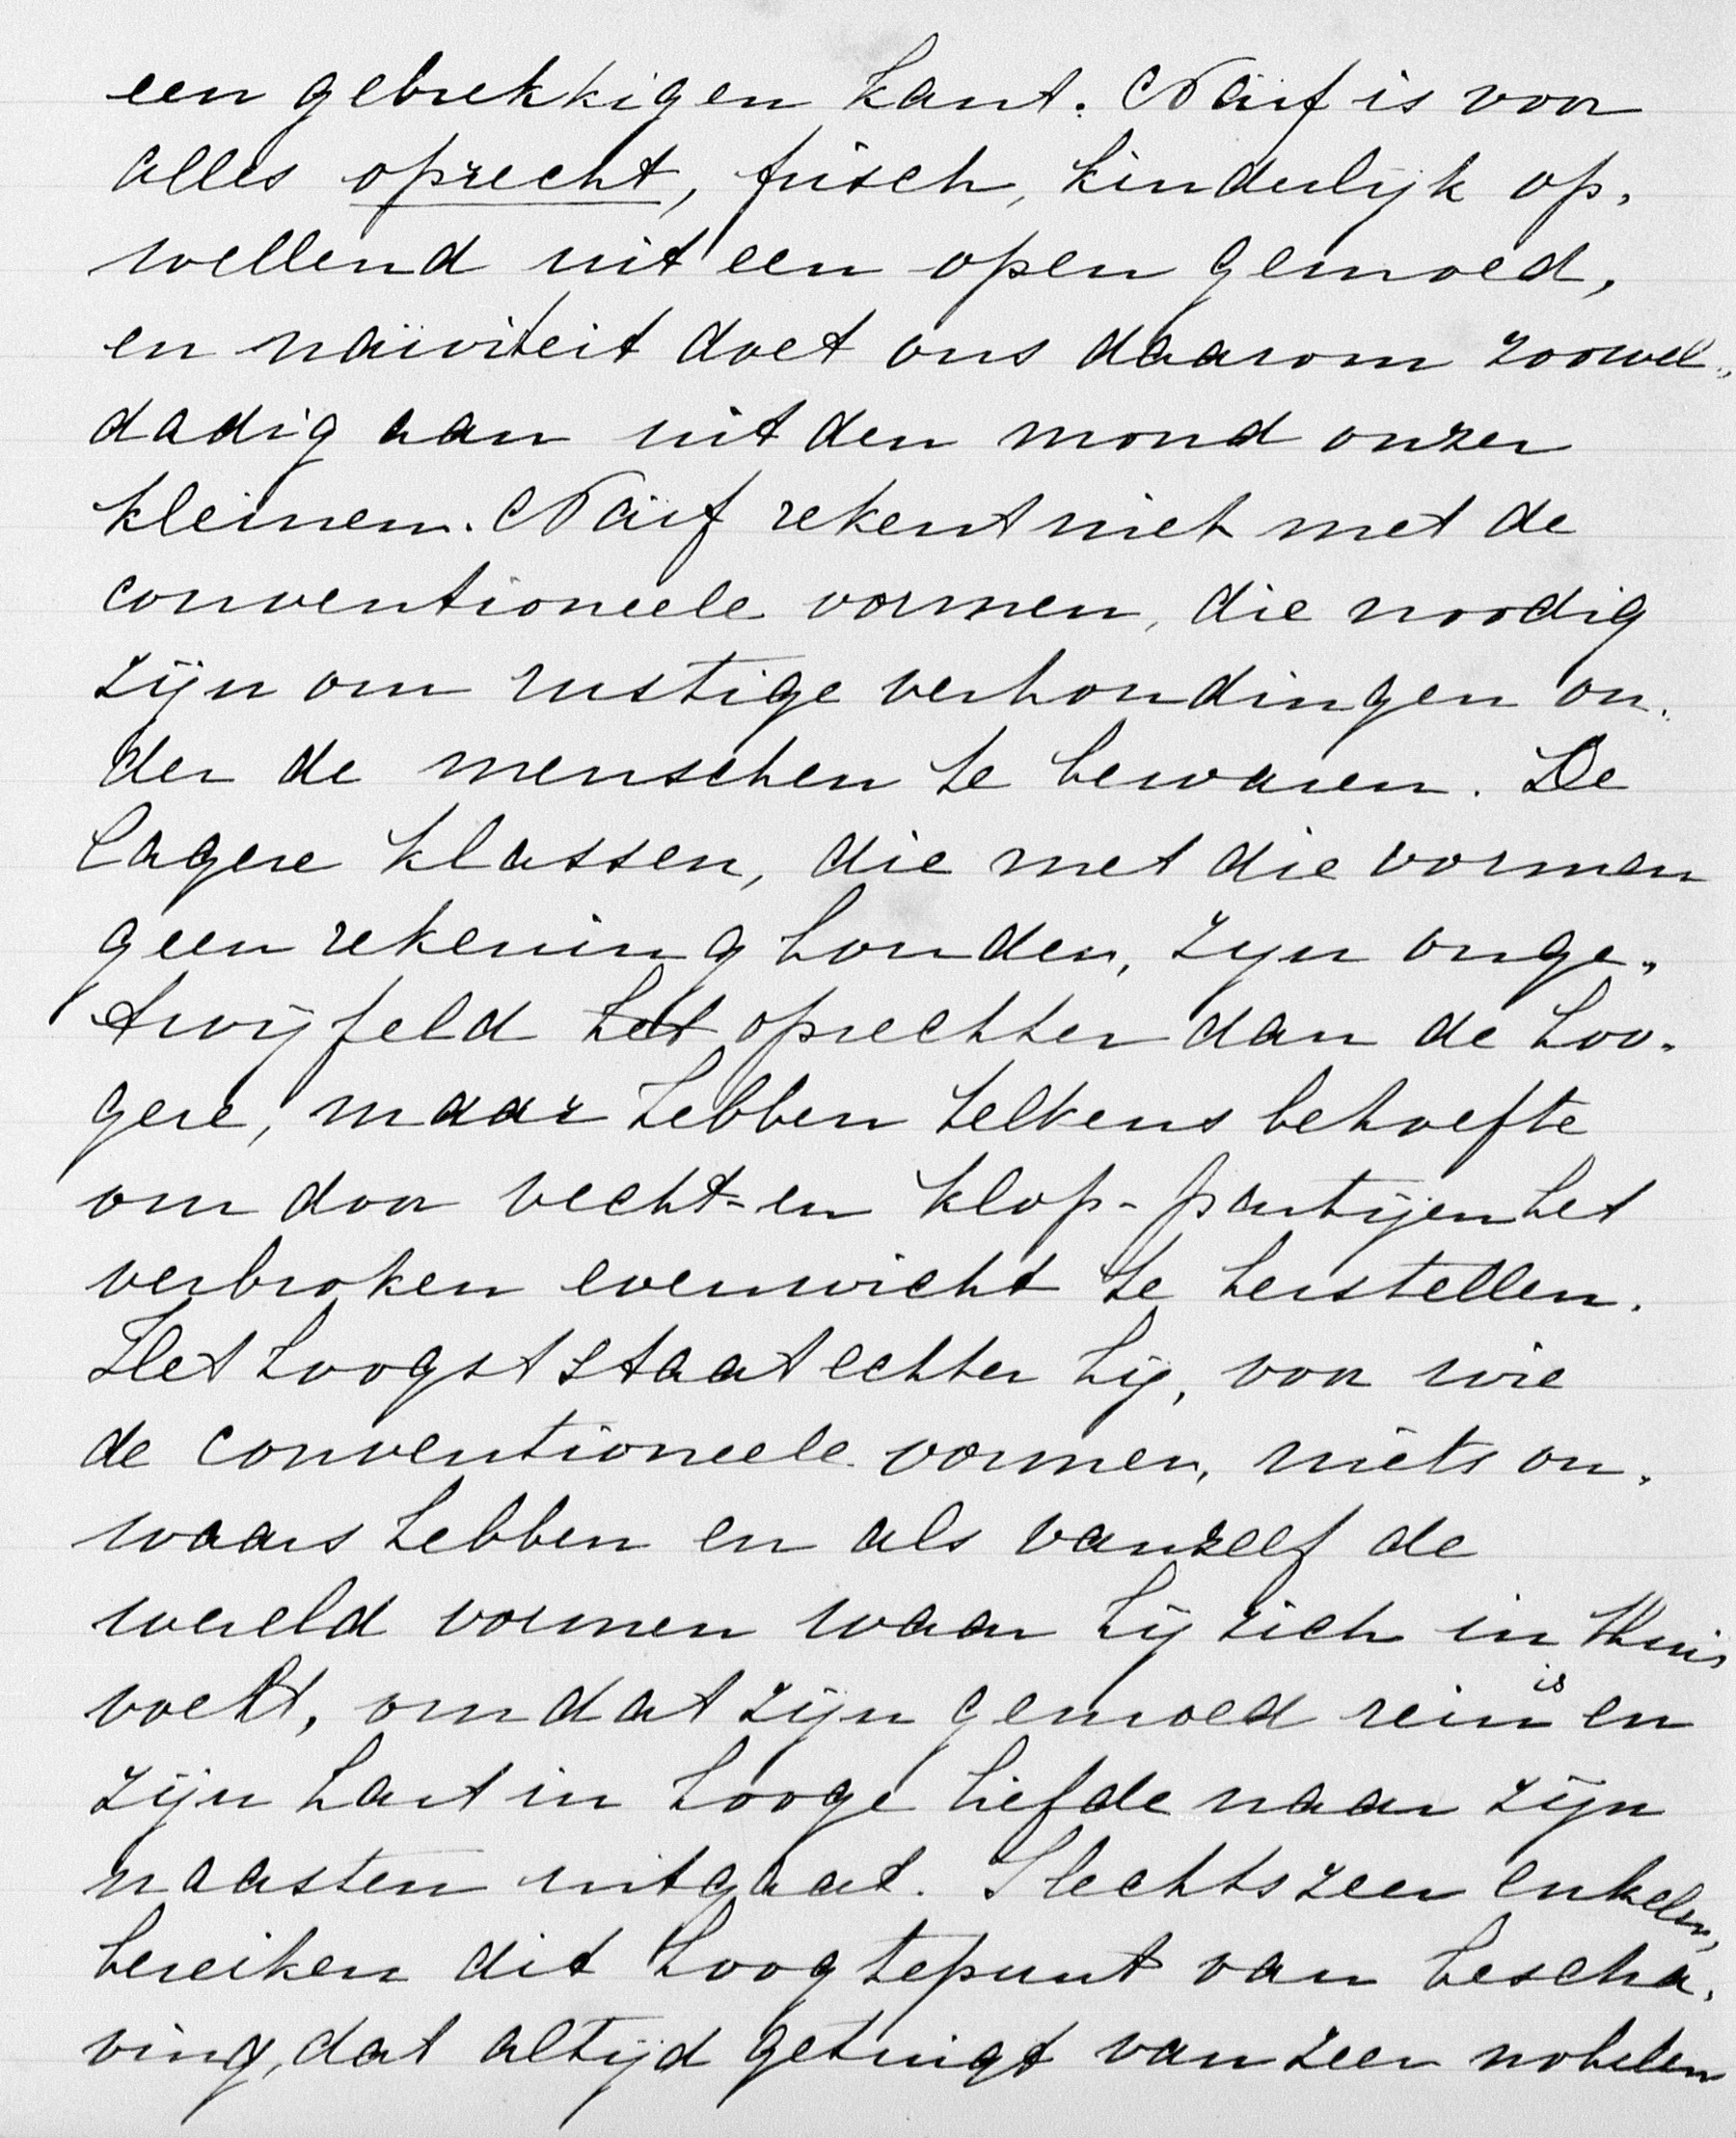 een gebrekkigen kant. Naïf is voor
alles oprecht, frisch, kinderlijk op-
wellend uit een open gemoed,
en naïviteit doet ons daarom zoowel-
dadig aan uit den mond onzer
kleinen. Naïf rekent niet met de
conventioneele vormen, die noodig
zijn om rustige verhoudingen on-
der de menschen te bewaren. De
lagere klassen, die met die vormen
geen rekening houden, zijn onge-
twijfeld het oprechter dan de hoo-
gere, maar hebben telkens behoefte
om door vecht- en klop-partijen het
verbroken evenwicht te herstellen.
Het hoogst staat echter hij, voor wie
de conventioneele vormen, niets on-
waars hebben en als vanzelf de
wereld vormen waar hij zich in thuis
voelt, omdat zijn gemoed rein is en
zijn hart in hooge liefde naar zijn
naasten uitgaat. Slechts zeer enkelen,
bereiken dit hoogtepunt van bescha-
ving, dat altijd getuigt van zeer nobelen